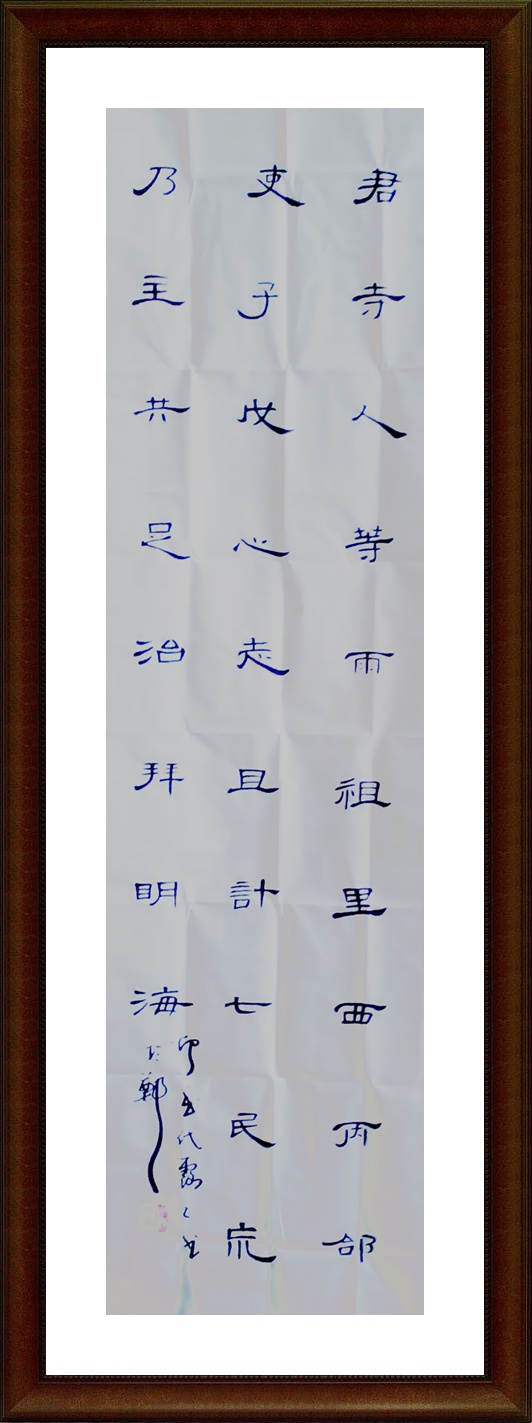 君寺人等雨祖里西丙郃
吏子戊心志且計七民宗
乃主共足治拜明海